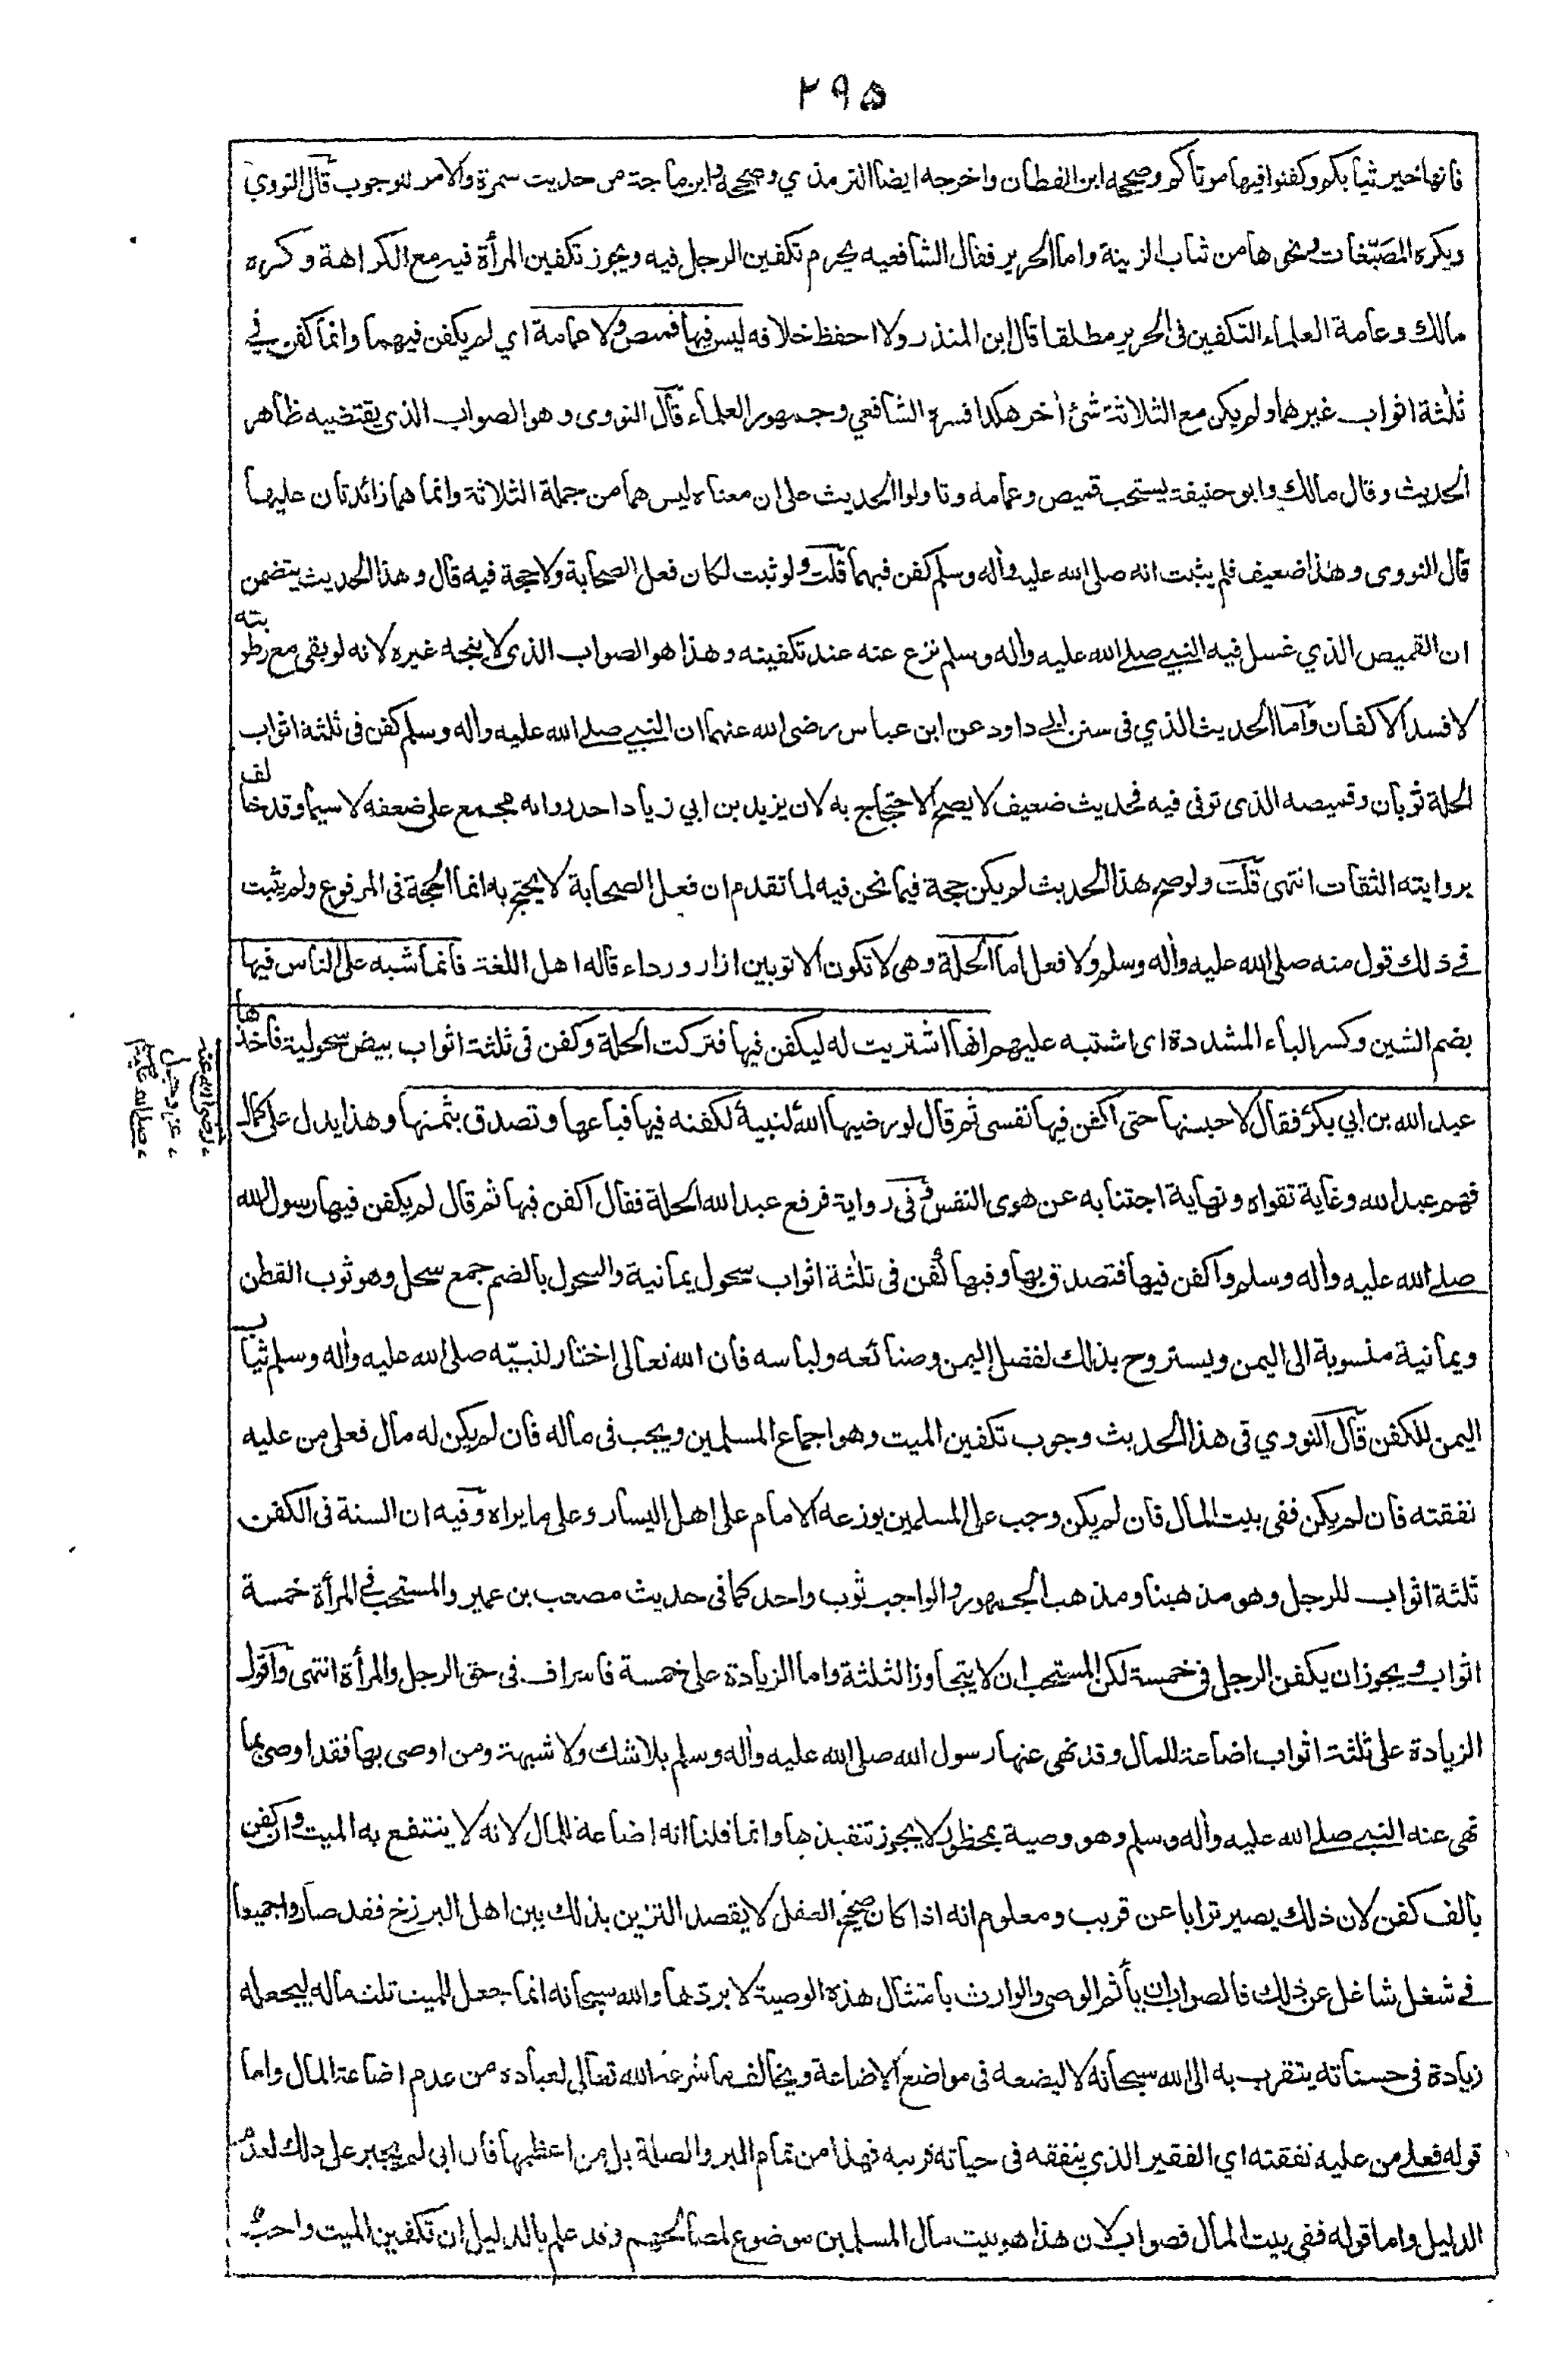 ۲۹۵
فانها خير ثيابكم وكفنوا فيها موتاكم وصححه ابن القطان واخرجه ايضا الترمذي وصححه وابن ماجة من حديث سمرة والامر للوجوب قال النووي
ويكره المصبّغات ونحوها من ثياب الزينة واما الحرير فقال الشافعيه يحرم تكفين الرجل فيه ويجوز تكفين المرأة فيه مع الكراهة وكره
مالك وعامة العلماء التكفين فى الحرير مطلقا قال ابن المنذر ولا احفظ خلافه ليس فيها قميص ولا عمامة اي لم يكفن فيهما وانما كفن في
ثلثة اثواب غيرهما ولم يكن مع الثلاثة شئ أخر هكذا فسره الشافعي وجمهور العلماء قال النووى وهو الصواب الذى يقتضيه ظاهر
الحديث وقال مالك وابو حنيفة يستحب قميص وعمامه وتاولوا الحديث على ان معناه ليس هما من جملة الثلاثة وانما هما زائدتان عليها
قال النووى وهذا ضعيف فلم يثبت انه صلى الله عليه وأله وسلم كفن فيهما قلت ولو ثبت لكان فعل الصحابة ولا حجة فيه قال وهذا الحديث يتضمن
ان القميص الذي غسل فيه النبي صلى الله عليه وأله وسلم نزع عنه عند تكفينه وهذا هو الصواب الذى لا يتجه غيره لانه لو بقى مع رطوبته
لافسد الاكفان واما الحديث الذي فى سنن ابى داود عن ابن عباس رضى الله عنهما ان النبي صلى الله عليه وأله وسلم كفن فى ثلثة اثواب
الحلة ثوبان وقميصه الذى توفى فيه فحديث ضعيف لا يصح الاحتجاج به لان يزيد بن ابي زياد احد رواته مجمع على ضعفه لا سيما وقد خالف
بروايته الثقات انتهى قلت ولو صح هذا الحديث لم يكن حجة فيما نحن فيه لما تقدم ان فعل الصحابة لا يحتج به انما الحجة فى المرفوع ولم يثبت
في ذلك قول منه صلى الله عليه وأله وسلم ولا فعل اما الحلة وهى لا تكون الا ثوبين ازار ورداء قاله اهل اللغة فانما شبه على الناس فيها
بضم الشين وكسر الباء المشددة اى اشتبه عليهم انها اشتريت له ليكفن فيها فتركت الحلة وكفن فى ثلثة اثواب بيض سحولية فاخذها
عبد الله بن ابي بكر فقال لاحبسنها حتى اكفن فيها نفسى ثم قال لو رضيها الله لنبيه لكفنه فيها فباعها وتصدق بثمنها وهذا يدل على كمال
فهم عبد الله وغاية تقواه ونهاية اجتنابه عن هوى النفس وفى رواية فرفع عبد الله الحلة فقال اكفن فيها ثم قال لم يكفن فيها رسول الله
صلى الله عليه وأله وسلم واكفن فيها فتصدق بها وفيها كُفن فى ثلثة اثواب سحول يمانية والسحول بالضم جمع سحل وهو ثوب القطن
ويمانية منسوبة الى اليمن ويستروح بذلك لفضل اليمن وصنائعه ولباسه فان الله تعالى اختار لنبيّه صلى الله عليه وأله وسلم ثياب
اليمن للكفن قال النووي فى هذا الحديث وجوب تكفين الميت وهو اجماع المسلمين ويجب فى ماله فان لم يكن له مال فعلى من عليه
نفقته فان لم يكن ففى بيت المال فان لم يكن وجب على المسلمين يوزعه الامام على اهل اليسار وعلى ما يراه وفيه ان السنة فى الكفن
ثلثة اثواب للرجل وهو مذهبنا ومذهب الجمهور والواجب ثوب واحد كما فى حديث مصعب بن عمير والمستحب في المرأة خمسة
اثواب ويجوز ان يكفن الرجل فى خمسة لكن المستحب ان لا يتجاوز الثلثة واما الزيادة على خمسة فاسراف فى حق الرجل والمرأة انتهى واقول
الزيادة على ثلثة اثواب اضاعة للمال وقد نهى عنها رسول الله صلى الله عليه وأله وسلم بلا شك ولا شبهة ومن اوصى بها فقد اوصى بما
نهى عنه النبي صلى الله عليه وأله وسلم وهو وصية بمحظور لا يجوز تنفيذها وانما قلنا انه اضاعة للمال لانه لا ينتفع به الميت وان كفن
بالف كفن لان ذلك يصير ترابا عن قريب ومعلوم انه اذا كان صحيح العقل لا يقصد التزين بذلك بين اهل البرزخ فقد صاروا جميعا
في شغل شاغل عن ذلك فالصواب ان يأثم الوصى والوارث بامتثال هذه الوصية لا بردّها والله سبحانه انما جعل للميت ثلث ماله ليجعله
زيادة فى حسناته يتقرب به الى الله سبحانه لا ليضعه فى مواضع الاضاعة ويخالف ما شرعه الله تعالى لعباده من عدم اضاعة المال واما
قوله فعلى من عليه نفقته اي الفقير الذي ينفقه فى حياته قريبه فهذا من تمام البر والصلة بل من اعظمها فان ابى لم يجبر على ذلك لعدم
الدليل واما قوله ففى بيت المال فصواب لان هذا هو بيت مال المسلمين موضوع لمصالحهم وقد علم بالدليل ان تكفين الميت واجب
رضى الله عنه
عز وجل
صلى الله عليه وسلم